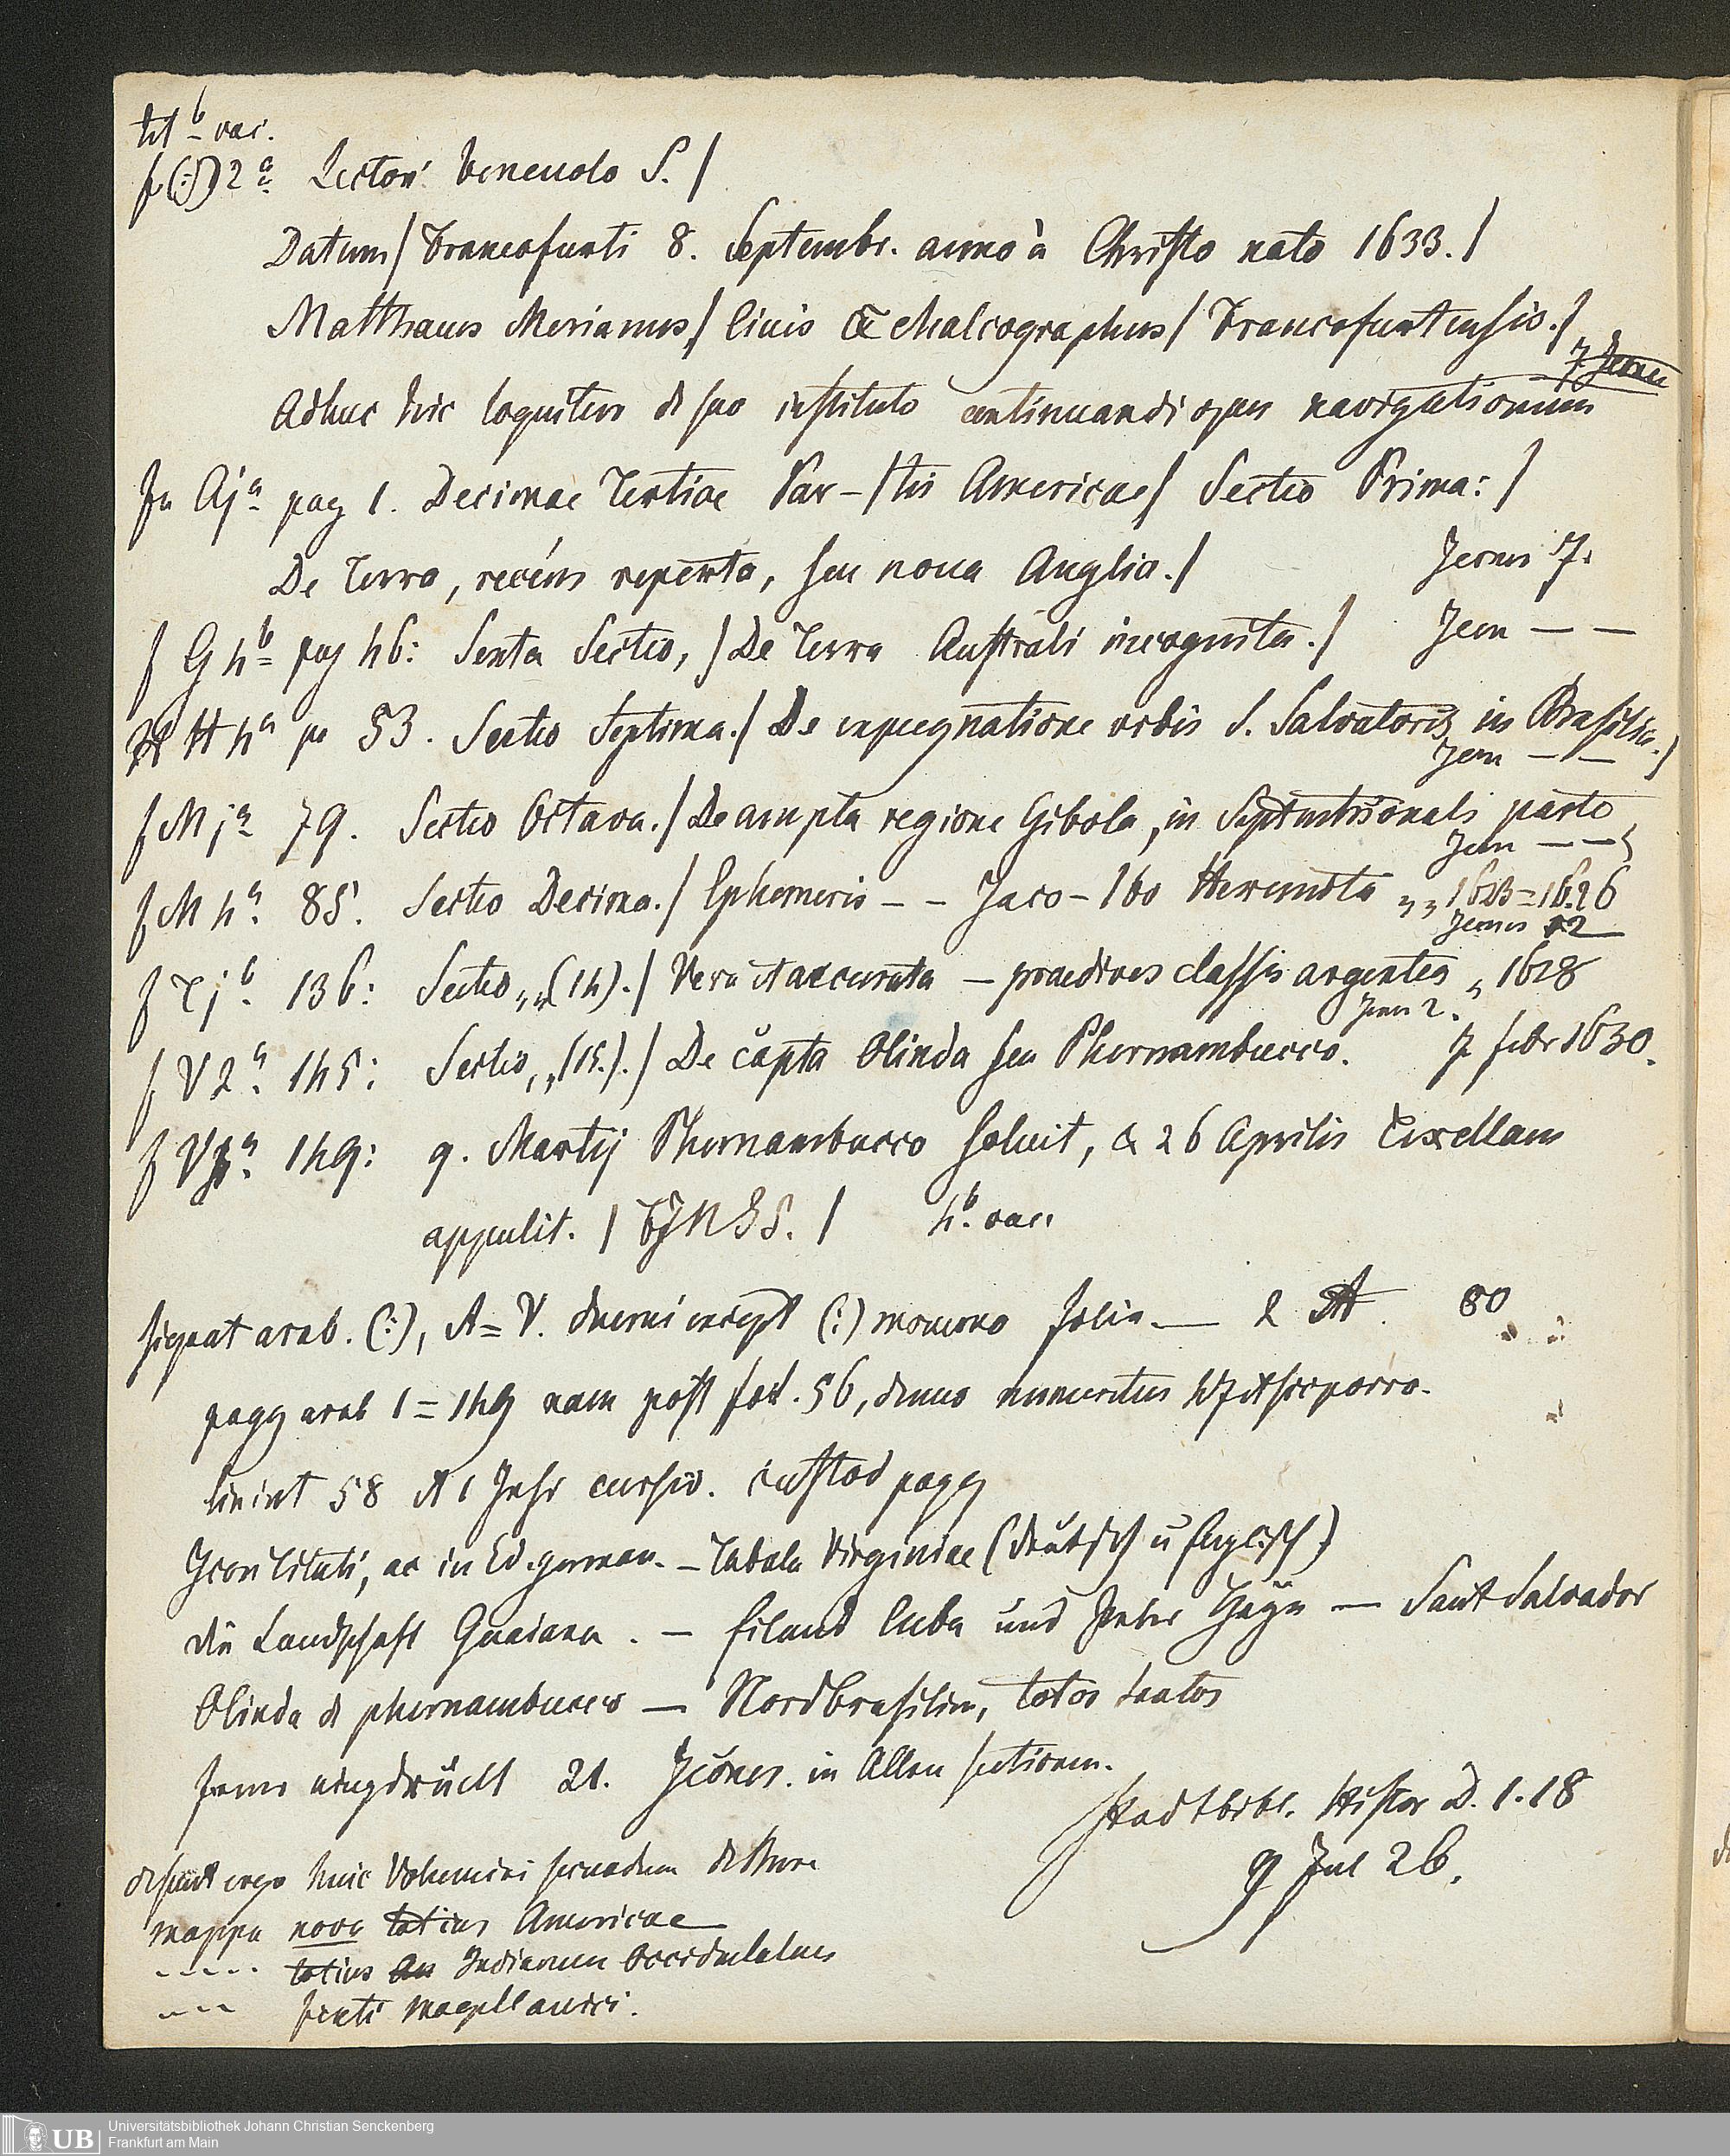 tit b vac.
f (:) 2 a Lectori benevolo S. /
Datum / Francofurti 8. Septembr. anno à Christo nato 1633. /
Matthaeus Merianus, / Civis & Chalcographus / Francofurtensis. /
7 Jcones
Adhuc hic loquitur de suo instituto continuandi opus navigationum
Fa Aj a pag 1. Decimae Tertiae Par- / tis Americae / Sectio Prima: /
De Terra, recéns reperta, seu noua Anglia. / Jcones 7.
f G 4 b pag 46: Sexta Sectio, / De Terra Australi incognita. / Jcon — —
H 4 a pa 53. Sectio Septima. / De expugnatione urbis S. Salvatoris in Brasilia. /
Jcon — —
f M j a 79. Sectio Octava. / De ampla regione Cibola, in Septentrionali parte
Jcon — —
f M 4 a. 85. Sectio Decima. / Ephemeris - - Jaco- / bo Heremita „ 1623=1626
Jcones 12
f T j b. 136: Sectio „ (14). / Vera et accurata — praedives classis argentea „ 1628
Jcon 2.
f V 2 a. 145: Sectio, „ (15.). / De căpta Olinda seu Phernambucco. febr 1630.
f V a. 149: 9. Martij Phernambucco soluit, & 26 Aprilis Texellam
appulit. / FJNIS. / 4 b. vac.
signat arab. (:), A=V. duerni except (:) folia — 2 et 80
pagg arab 1=149 nam post fol. 56, numeritus 47 et sic porro.
linint 58 et 1 cursiv. custod pagg
Jcon citati, ac in Ed. german. - Tabula Virginiae (deutsch u Englisch)
die Landschaft Guaiana. — Eiland Cuba und — Sant Salvador
Olinda de phernambucco — Nord Brasilien,
ferner eingedruckt 21. Jcones. in Allen sectionen.
Stadtbibl. Histor D. 1. 18
9 Jul 26.
desunt ergo huic Volumini secundum
mappa nova totius Americae
----- totius Indiarum Occidentalium
--- freti magellanici.
Universitätsbibliothek Johann Christian Senckenberg
Frankfurt am Main
UB